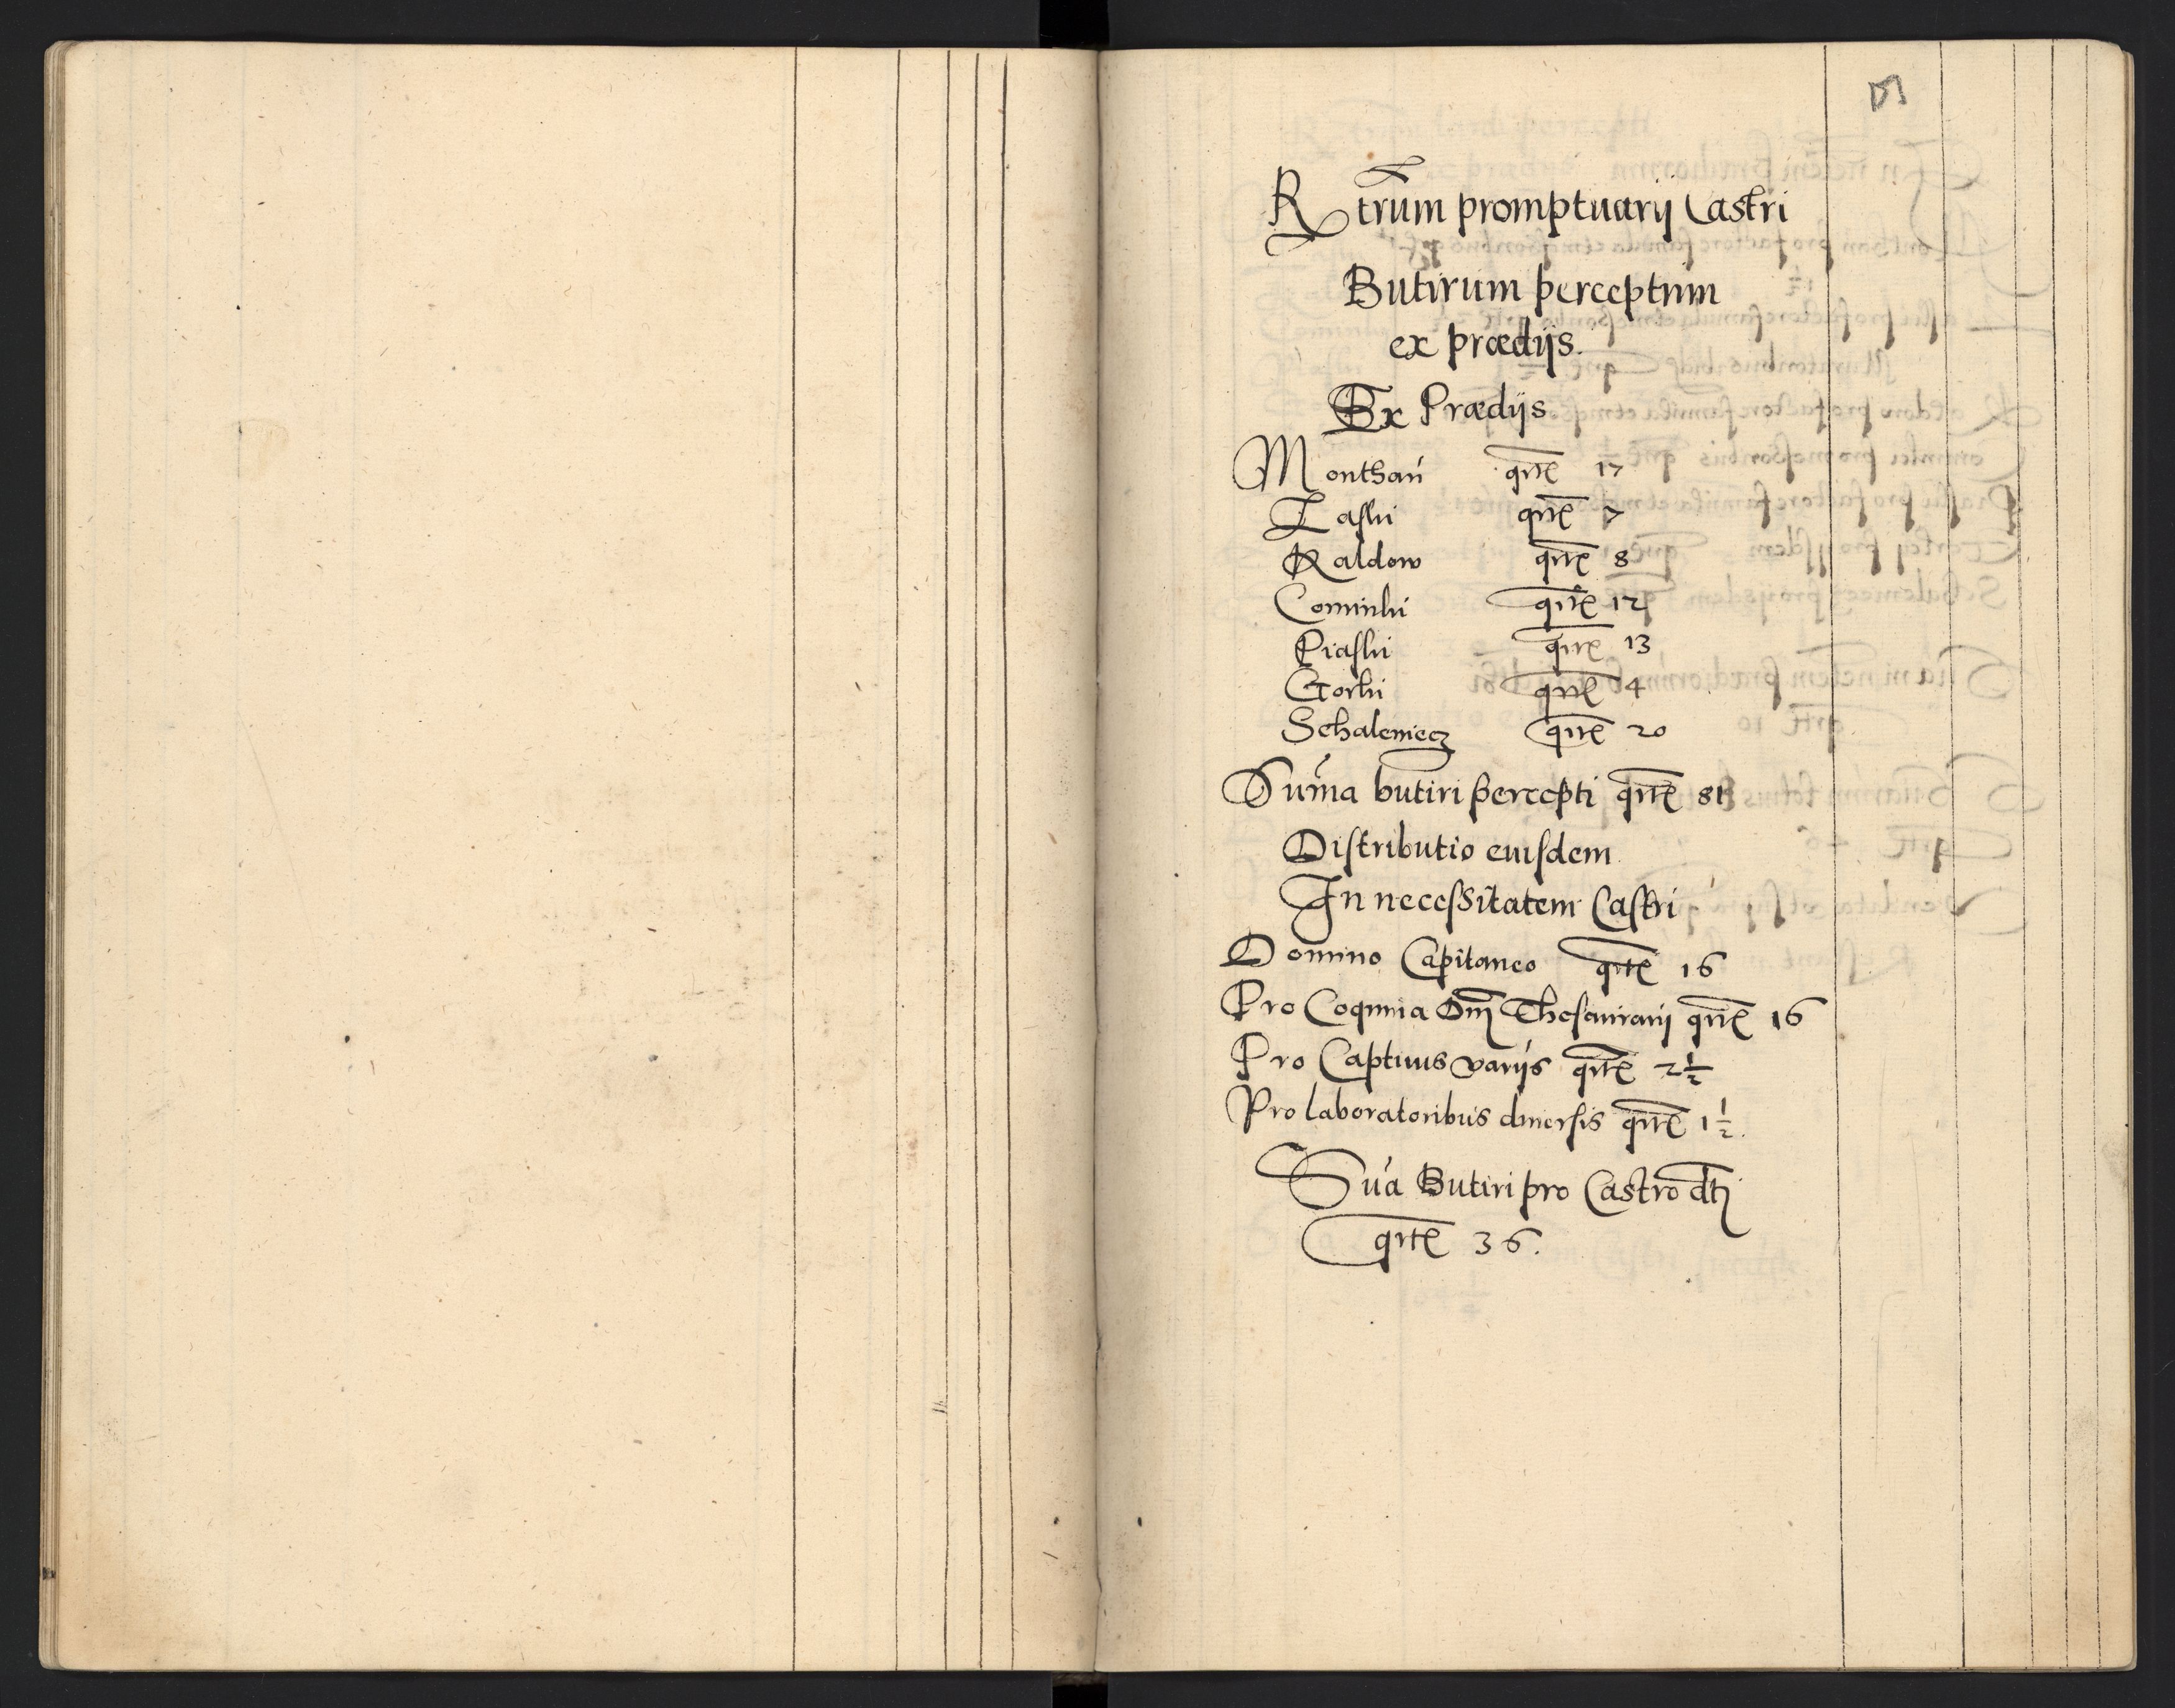 Rtrum promptuarij Castri
Butirum perceptum
ex prædijs.
Ex Prædijs
Monthaú qrtē 17
Laski qrtē 7
Kaldow qrtē 8
Cominki qrtē 12
Piaski qrtē 13
Gorki qrtē 4
Schaleniecz qrtē 20
Suma butiri percepti qrtē 81
Distributio eiusdem
In necessitatem Castri
Domino Capitaneo qrtē 16
Pro Coquina Dni Thesaurarij qrtē 16
Pro Captiuis varijs qrtē 2½
Pro laboratoribus diuersis qrtē 1½.
Sua Butiri pro Castro dti
qrtē 36.